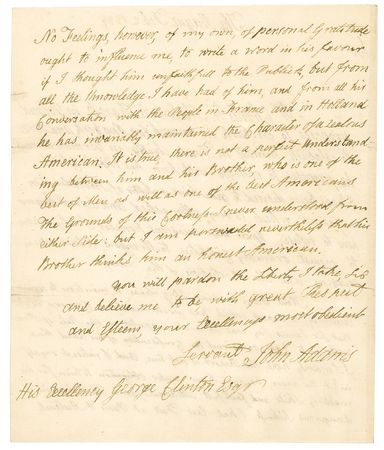 No Feelings, however, of my own, of personal Gratitude
ought to influence me, to write a Word in his favour
if I thought him unfaithfull to the Publick, but from
all the Knowledge I have had of him, and from all his
Conversation with the People in France and in Holland
he has invariably maintained the Character of a zealous
American. It is true, there is not a perfect Understand-
ing between him and his Brother, who is one of the
best of Men as well as one of the best Americans
The Grounds of this Coolness I never understood from
either Side: but I am persuaded nevertheless that his
Brother thinks him an honest American.
you will pardon the Liberty, I take Sir
and believe me to be with great Respect
and Esteem, your Excellencys most obedient
Servant John Adams
His Excellency George Clinton Esqr